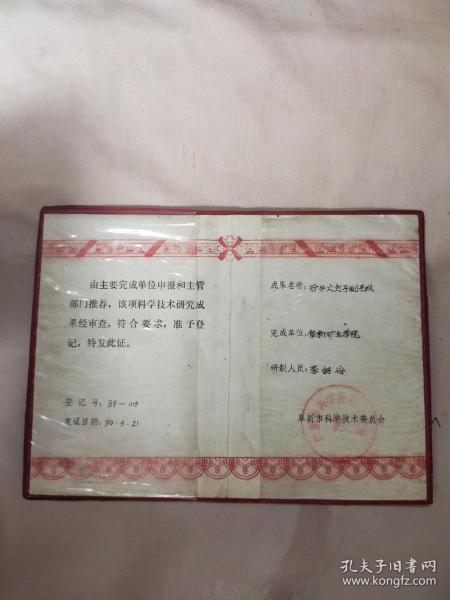 由主要完成单位申报和主管
部门推荐，该项科学技术研究成
果经审查，符合要求，准予登
记，特发此证。
登记号：89—013
发证日期：90·5·21
成果名称：
完成单位：阜新矿业学院
研制人员：李树
阜新市科学技术委员会
孔夫子旧书网
www.kongfz.com